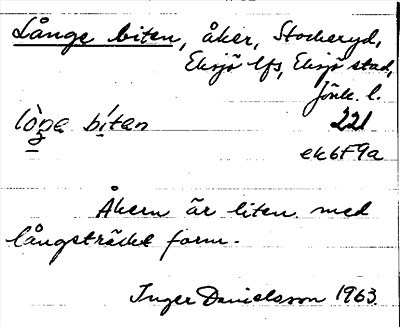 Långe biten, åker, Stockeryd,
Eksjö lfs, Eksjö stad,
Jönk. l.
221
ek6F9a
Åkern är liten med
långsträckt form.
Inger Danielsson 1963.